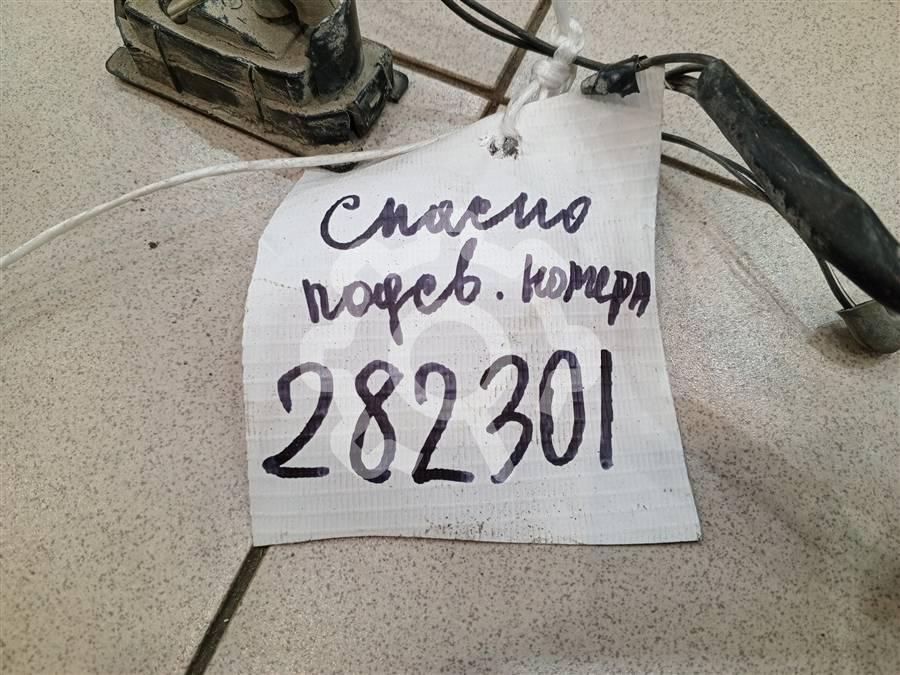 Спасио
подсв. номера
282301